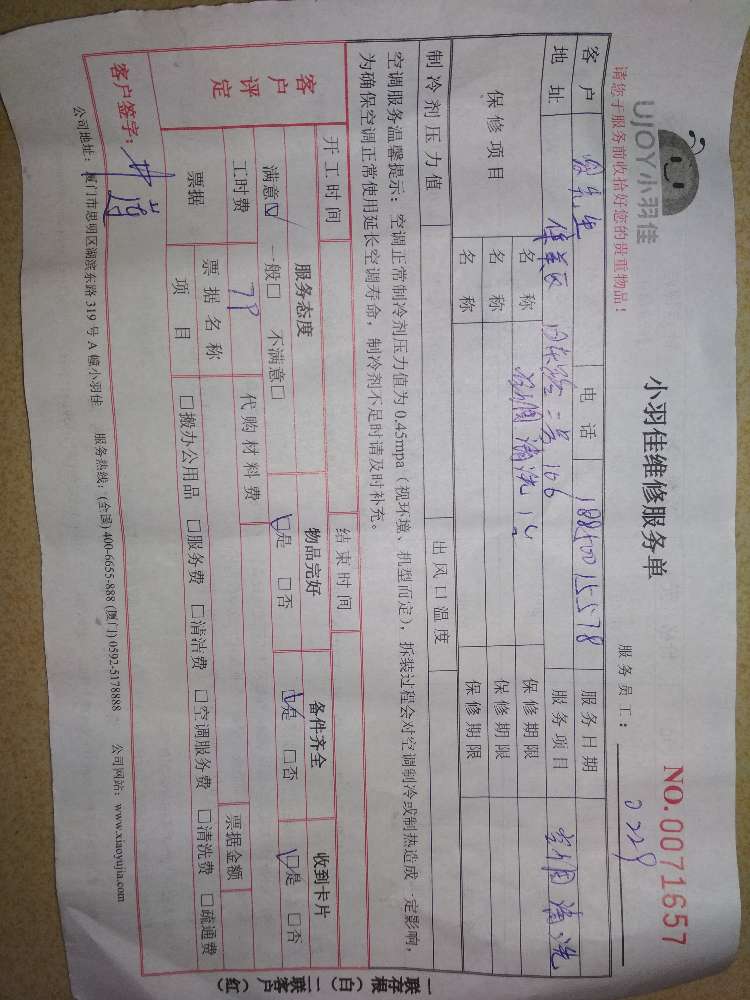 UJOY小羽佳
小羽佳维修服务单
NO.0071657
请您于服务前收拾好您的贵重物品!
服务员工: 0229
客户 先生 电话 18850015578 服务日期
地址 二号106 服务项目 空调清洗
保修项目 名称 空调清洗1台 保修期限
名称 保修期限
名称 保修期限
制冷剂压力值 出风口温度
空调服务温馨提示:空调正常制冷剂压力值为0.45mpa(视环境、机型而定),拆装过程会对空调制冷或制热造成一定影响,
为确保空调正常使用延长空调寿命,制冷剂不足时请及时补充。
开工时间 结束时间
客户评定 服务态度 物品完好 备件齐全 收到卡片
满意☑ 一般□ 不满意□ ☑是 □否 ☑是 □否 ☑是 □否
工时费 78 代购材料费
票据 票据名称 票据金额
项目 □搬办公用品 □服务费 □清洁费 □空调服务费 □清洗费 □疏通费
客户签字:
公司地址:厦门市思明区湖滨东路319号A幢小羽佳 服务热线:(全国)400-6655-888 (厦门) 0592-5178888 公司网站:www.xiaoyujia.com
一联存根(白) 二联客户(红)